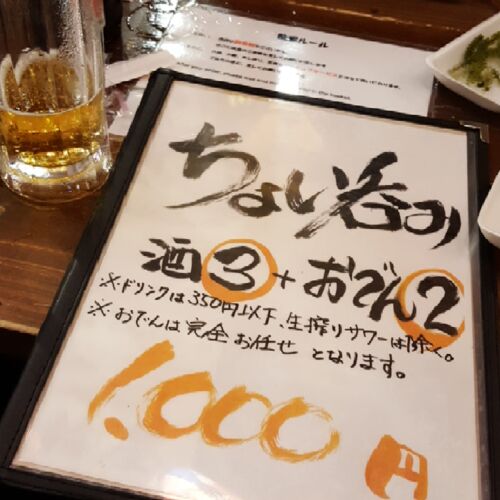 ちょい呑み
酒3+おでん2
※ドリンクは350円以下、生搾りサワーは除く。
※おでんは完全お任せとなります。
1.000円